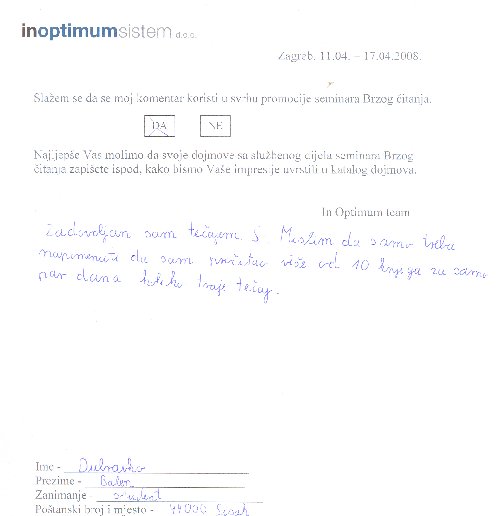 inoptimumsistem d.o.o.
Zagreb, 11.04. – 17.04.2008.
Slažem se da se moj komentar koristi u svrhu promocije seminara Brzog čitanja.
DA NE
Najljepše Vas molimo da svoje dojmove sa službenog dijela seminara Brzog
čitanja zapišete ispod, kako bismo Vaše impresije uvrstili u katalog dojmova.
In Optimum team
Zadovoljan sam tečajem. Mislim da samo treba
napomenuti da sam pročitao više od 10 knjiga za samo
par dana koliko traje tečaj.
Ime - Dubravko
Prezime - Balen
Zanimanje - student
Poštanski broj i mjesto - 44000 Sisak